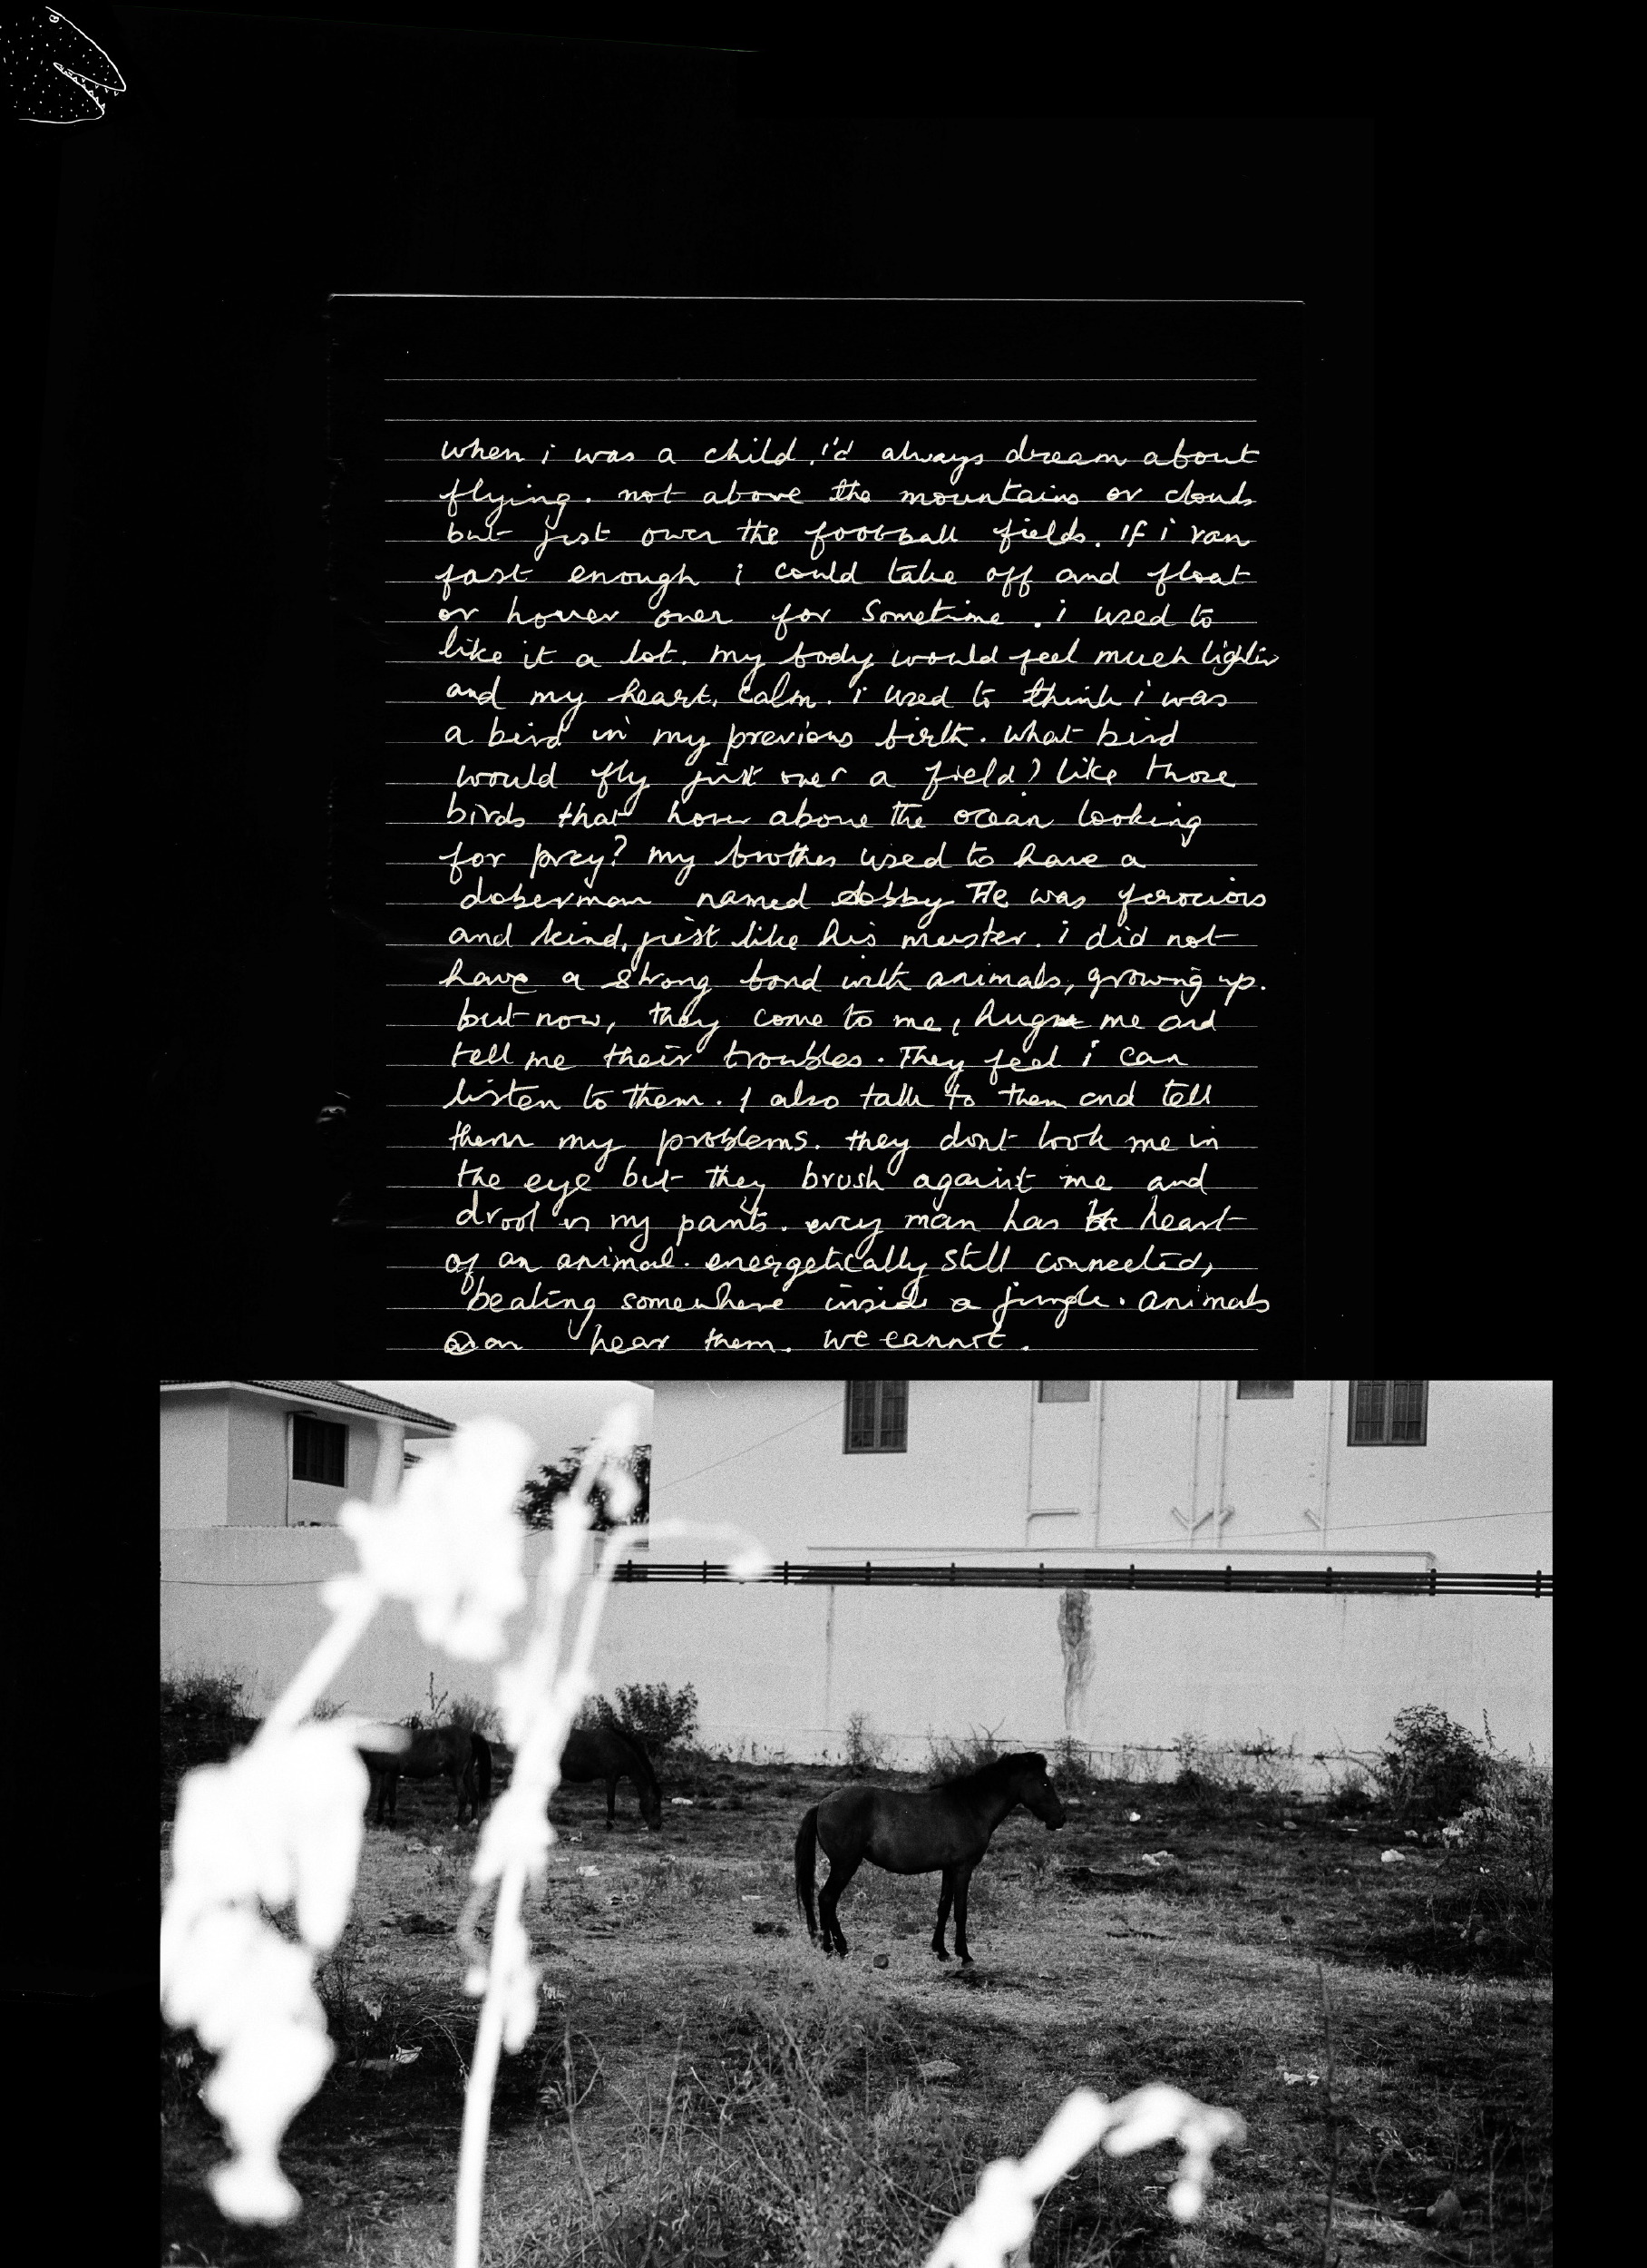 when i was a child, i'd always dream about
flying. not above the mountains or clouds
but just over the football fields. If i ran
fast enough i could take off and float
or hover over for sometime. i used to
like it a lot. my body would feel much lighter
and my heart, calm. i used to think i was
a bird in my previous birth. what bird
would fly just over a field? like those
birds that hover above the ocean looking
for prey? my brother used to have a
doberman named dobby He was ferocious
and kind, just like his master. i did not
have a strong bond with animals, growing up.
but now, they come to me, hug me and
tell me their troubles. They feel i can
listen to them. I also talk to them and tell
them my problems. they dont look me in
the eye but they brush against me and
drool on my pants. every man has the heart
of an animal. energetically still connected,
beating somewhere inside a jungle. animals
can hear them. we cannot.